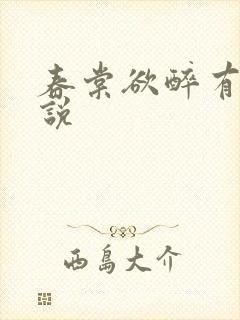 春棠欲醉有
說
西島大介